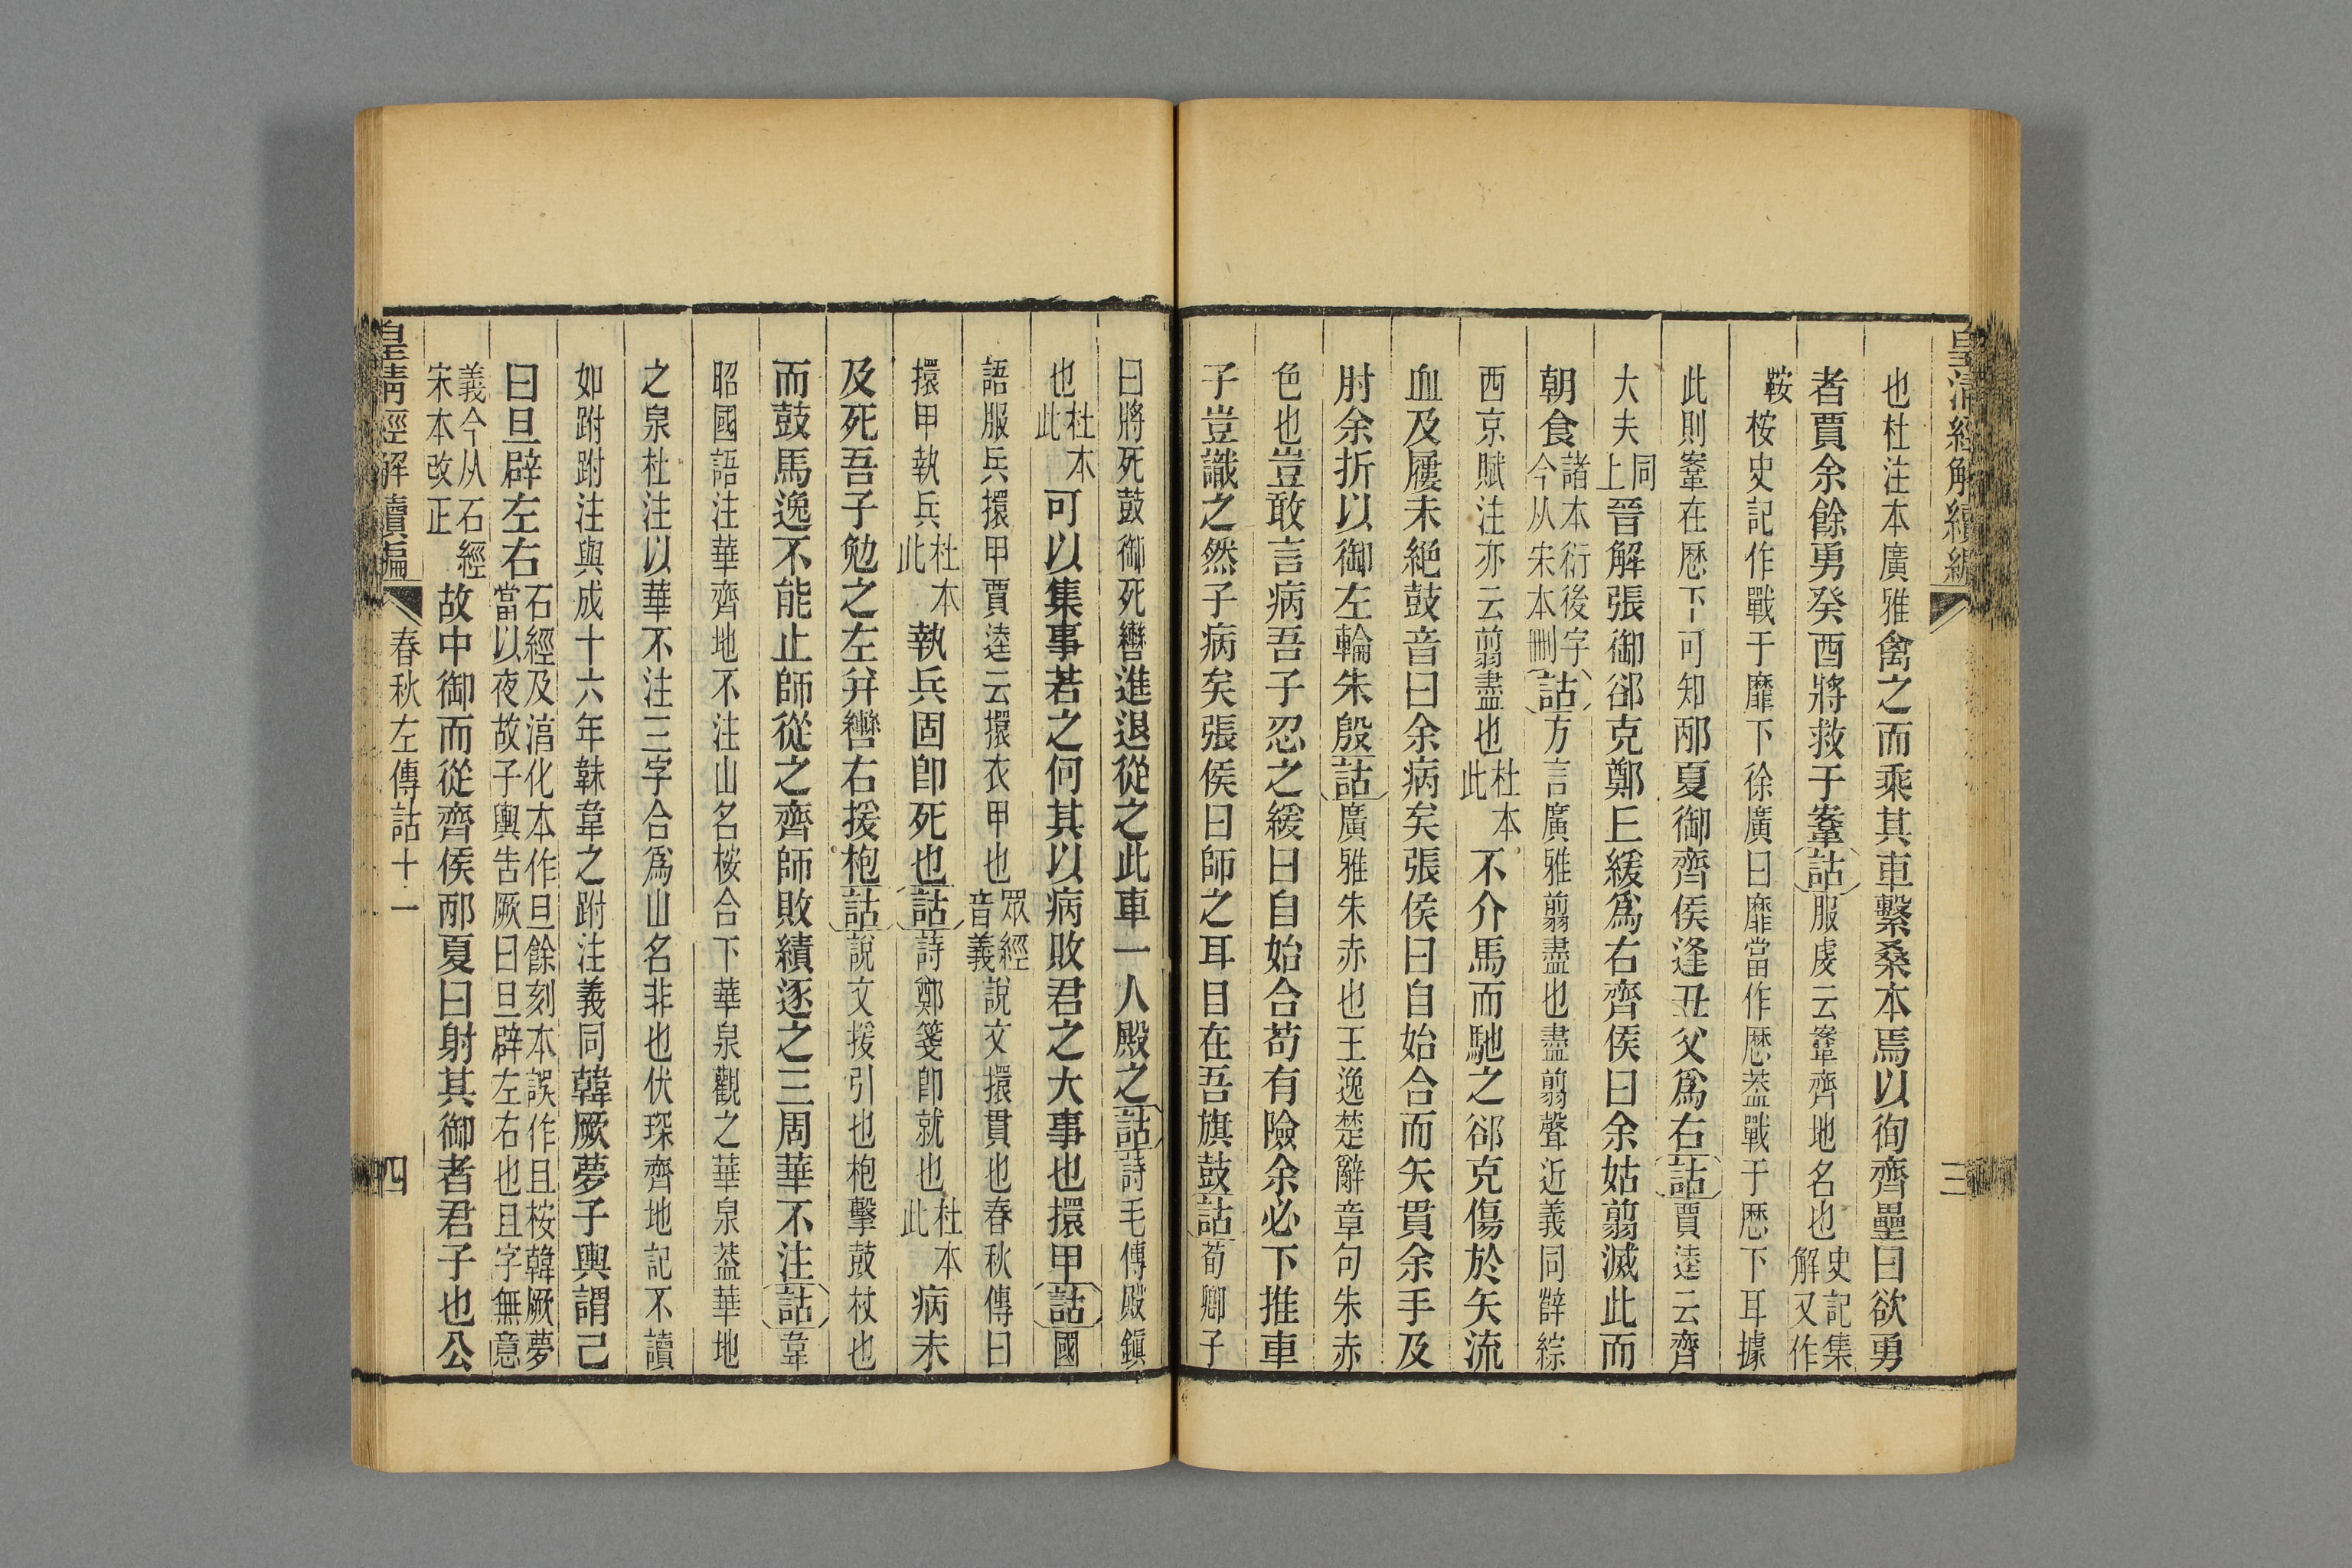 皇清經解續編
三
也杜注本廣雅禽之而乘其車繫桑本焉以徇齊壘曰欲勇
者賈余餘勇癸酉將救于鞌詁服虔云鞌齊地名也史記集解又作
鞍桉史記作戰于靡下徐廣曰靡當作歷葢戰于歷下耳據
此則鞌在歷下可知邴夏御齊侯逢丑父爲右詁賈逵云齊
大夫同上晉解張御郤克鄭丘緩爲右齊侯曰余姑翦滅此而
朝食諸本衍後字今从宋本刪詁方言廣雅翦盡也盡翦聲近義同薛綜
西京賦注亦云翦盡也杜本此不介馬而馳之郤克傷於矢流
血及屨未絕鼓音曰余病矣張侯曰自始合而矢貫余手及
肘余折以御左輪朱殷詁廣雅朱赤也王逸楚辭章句朱赤
色也豈敢言病吾子忍之緩曰自始合苟有險余必下推車
子豈識之然子病矣張侯曰師之耳目在吾旗鼓詁荀卿子
曰將死鼓御死轡進退從之此車一人殿之詁詩毛傳殿鎭
也杜本此可以集事若之何其以病敗君之大事也擐甲詁國
語服兵擐甲賈逵云擐衣甲也眾經音義說文擐貫也春秋傳曰
擐甲執兵杜本此執兵固卽死也詁詩鄭箋卽就也杜本此病未
及死吾子勉之左并轡右援枹詁說文援引也枹擊鼓杖也
而鼓馬逸不能止師從之齊師敗績逐之三周華不注詁韋
昭國語注華齊地不注山名桉合下華泉觀之華泉葢華地
之泉杜注以華不注三字合爲山名非也伏琛齊地記不讀
如跗跗注與成十六年韎韋之跗注義同韓厥夢子輿謂己
曰旦辟左右石經及淳化本作旦餘刻本誤作且桉韓厥夢當以夜故子輿告厥曰旦辟左右也且字無意
義今从石經宋本改正故中御而從齊侯邴夏曰射其御者君子也公
皇清經解續編
春秋左傳詁十一
四